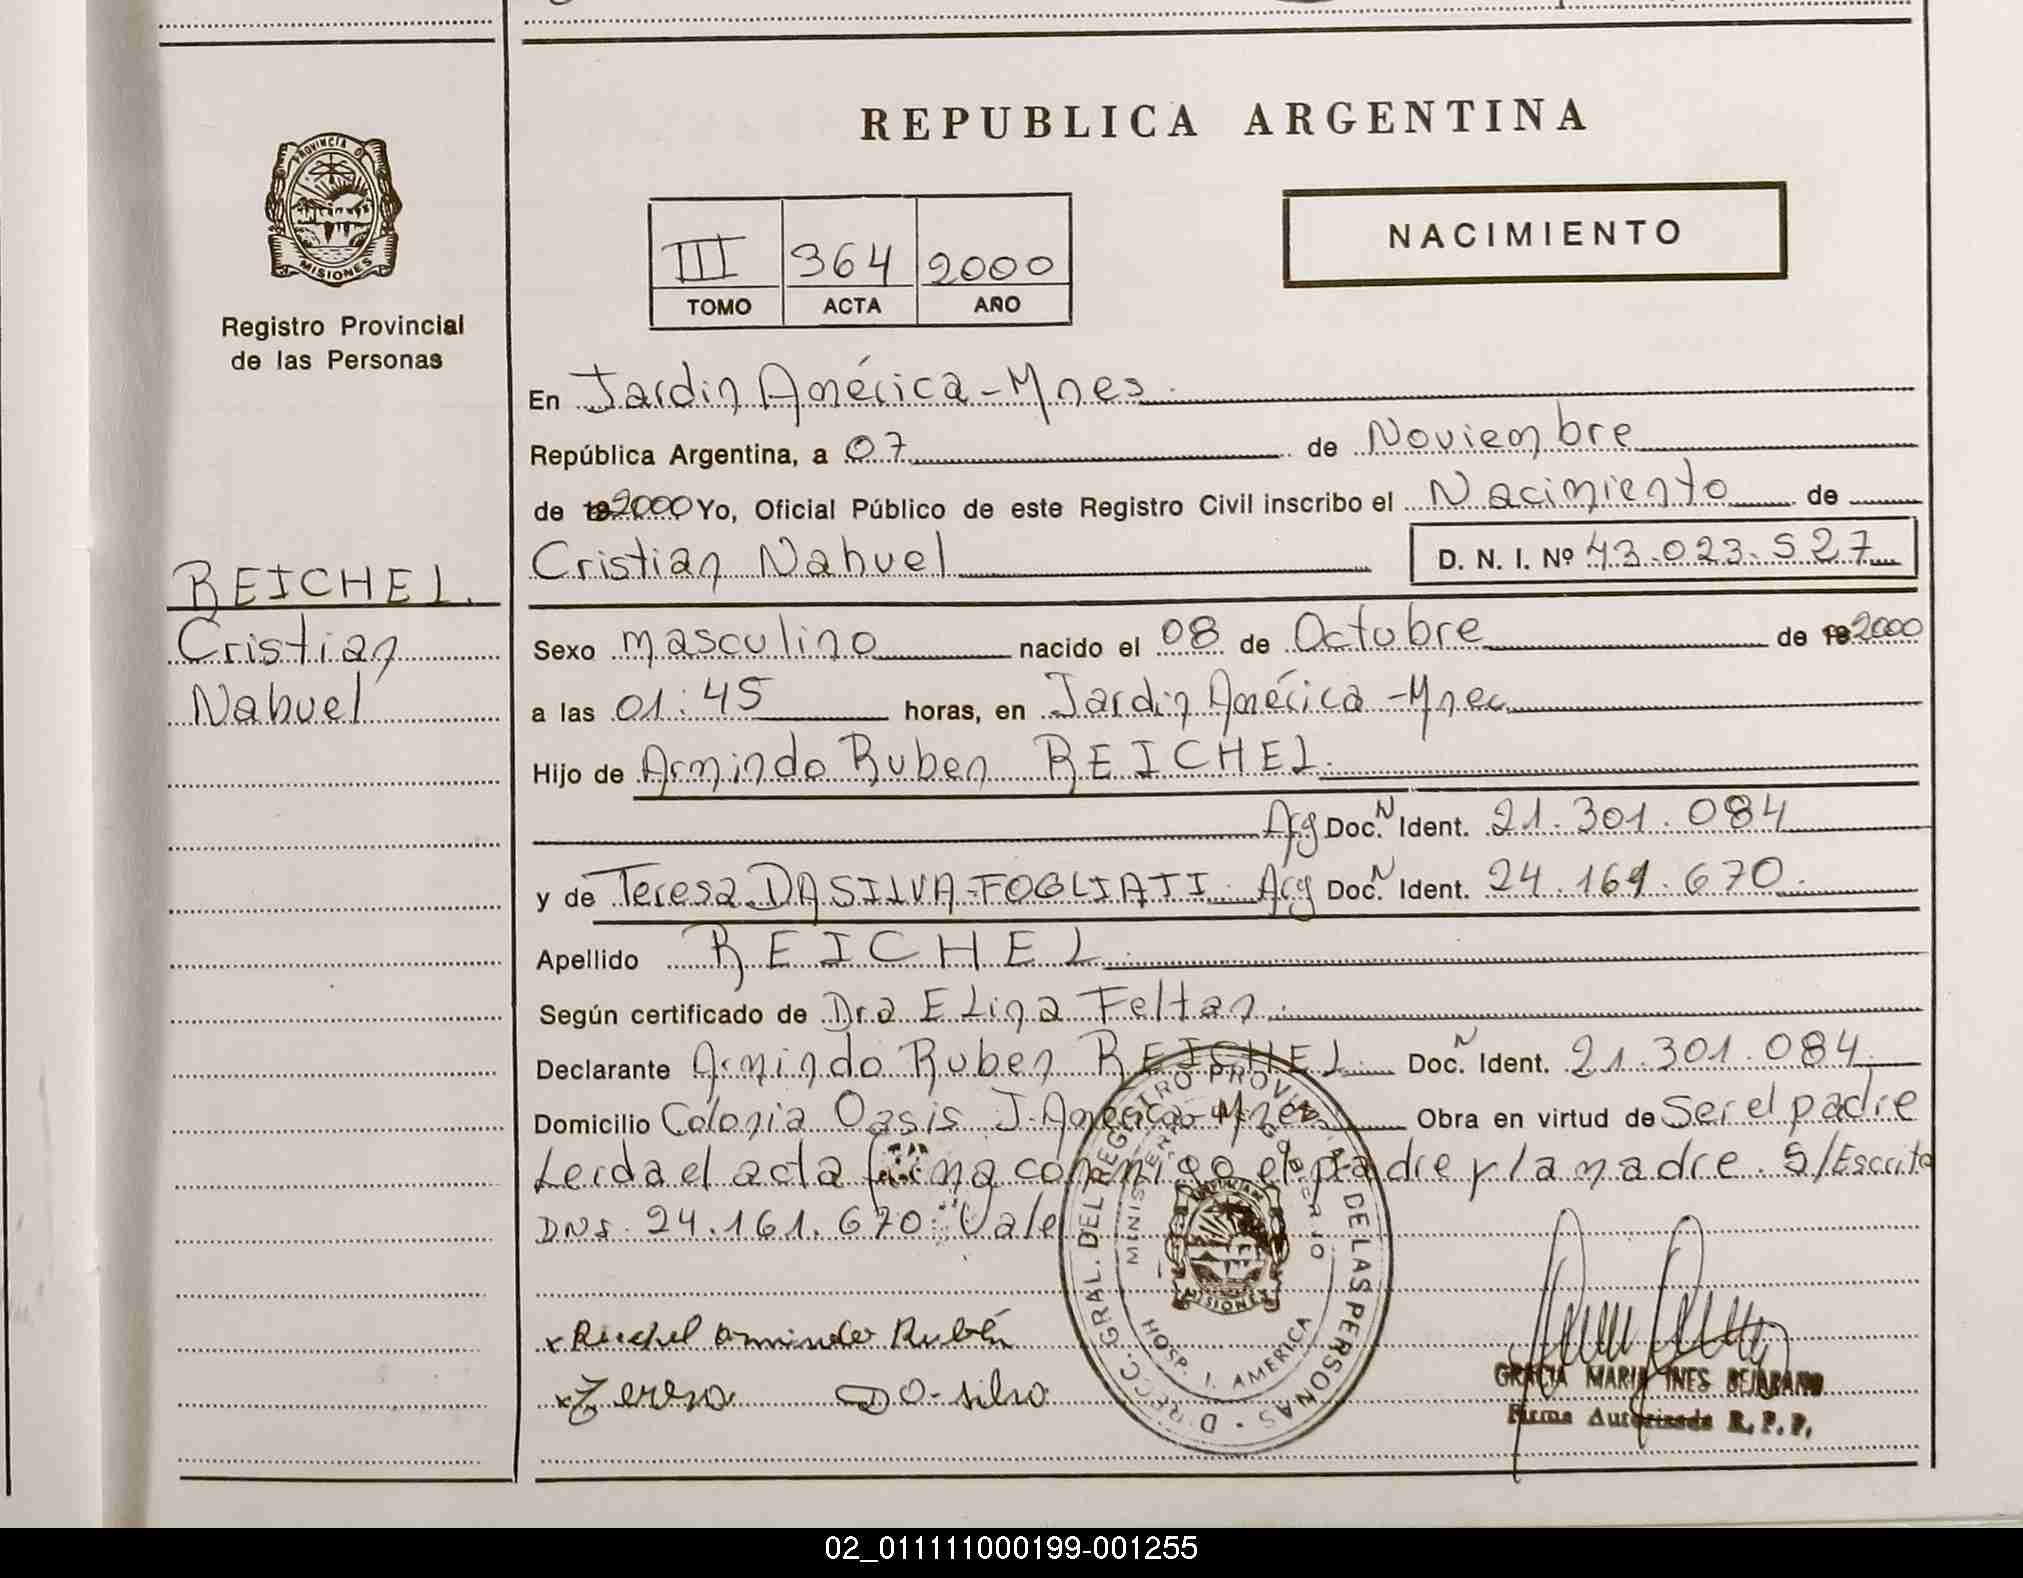 PROVINCIA D
MISIONES
Registro Provincial
de las Personas
REICHEL
Cristian
Nahuel
REPUBLICA ARGENTINA
III 364 2000
TOMO ACTA AÑO
NACIMIENTO
En Jardin América - Mnes.
República Argentina, a 07 de Noviembre
de 192000 Yo, Oficial Público de este Registro Civil inscribo el Nacimiento de
Cristian Nahuel D. N. I. Nº 43.023.527
Sexo masculino nacido el 08 de Octubre de 192000
a las 01:45 horas, en Jardin América - Mnes
Hijo de Armindo Ruben REICHEL.
Arg Doc. N Ident. 21.301.084
y de Teresa DA SILVA-FOGLIATI. Arg Doc. N Ident. 24.161.670.
Apellido REICHEL.
Según certificado de Dra ELina Feltan.
Declarante Armindo Ruben REICHEL. Doc. N Ident. 21.301.084.
Domicilio Colonia Oasis J. América - Mnes Obra en virtud de Ser el padre
Leida el acta firma conmigo el padre y la madre. S/Escrito
DNI. 24.161.670: Vale
DIRECC. GRAL. DEL REGISTRO PROVINCIAL DE LAS PERSONAS
MINISTERIO GOBIERNO
MISIONES
HOSP. J. AMERICA
x Reichel Armindo Rubén
x Teresa Da-silva
GRACIA MARIA INES BEJARANO
Firma Autorizada R. P. P.
02_011111000199-001255